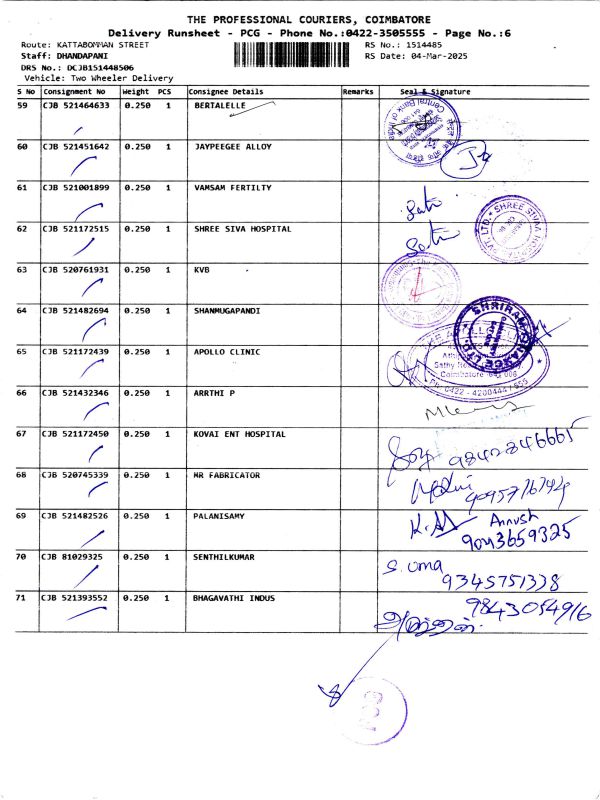 THE PROFESSIONAL COURIERS, COIMBATORE
Delivery Runsheet - PCG - Phone No.:0422-3505555 - Page No.:6
Route: KATTABOMMAN STREET RS No.: 1514485
Staff: DHANDAPANI RS Date: 04-Mar-2025
DRS No.: DCJB151448506
Vehicle: Two Wheeler Delivery
S No Consignment No Weight PCS Consignee Details Remarks Seal & Signature
59 CJB 521464633 0.250 1 BERTALELLE
Central Bank of India
60 CJB 521451642 0.250 1 JAYPEEGEE ALLOY
61 CJB 521001899 0.250 1 VAMSAM FERTILTY
62 CJB 521172515 0.250 1 SHREE SIVA HOSPITAL
SHREE SIVAA
63 CJB 520761931 0.250 1 KVB
64 CJB 521482694 0.250 1 SHANMUGAPANDI
SHRIRAM FINANCE LTD.
65 CJB 521172439 0.250 1 APOLLO CLINIC
Sathy
Coimbatore-641 006
Ph: 0422 - 42004447/555
66 CJB 521432346 0.250 1 ARRTHI P
67 CJB 521172450 0.250 1 KOVAI ENT HOSPITAL
9842846665
68 CJB 520745339 0.250 1 MR FABRICATOR
69 CJB 521482526 0.250 1 PALANISAMY
Annush
9043659325
70 CJB 81029325 0.250 1 SENTHILKUMAR
S. uma
9345751338
71 CJB 521393552 0.250 1 BHAGAVATHI INDUS
9843054916